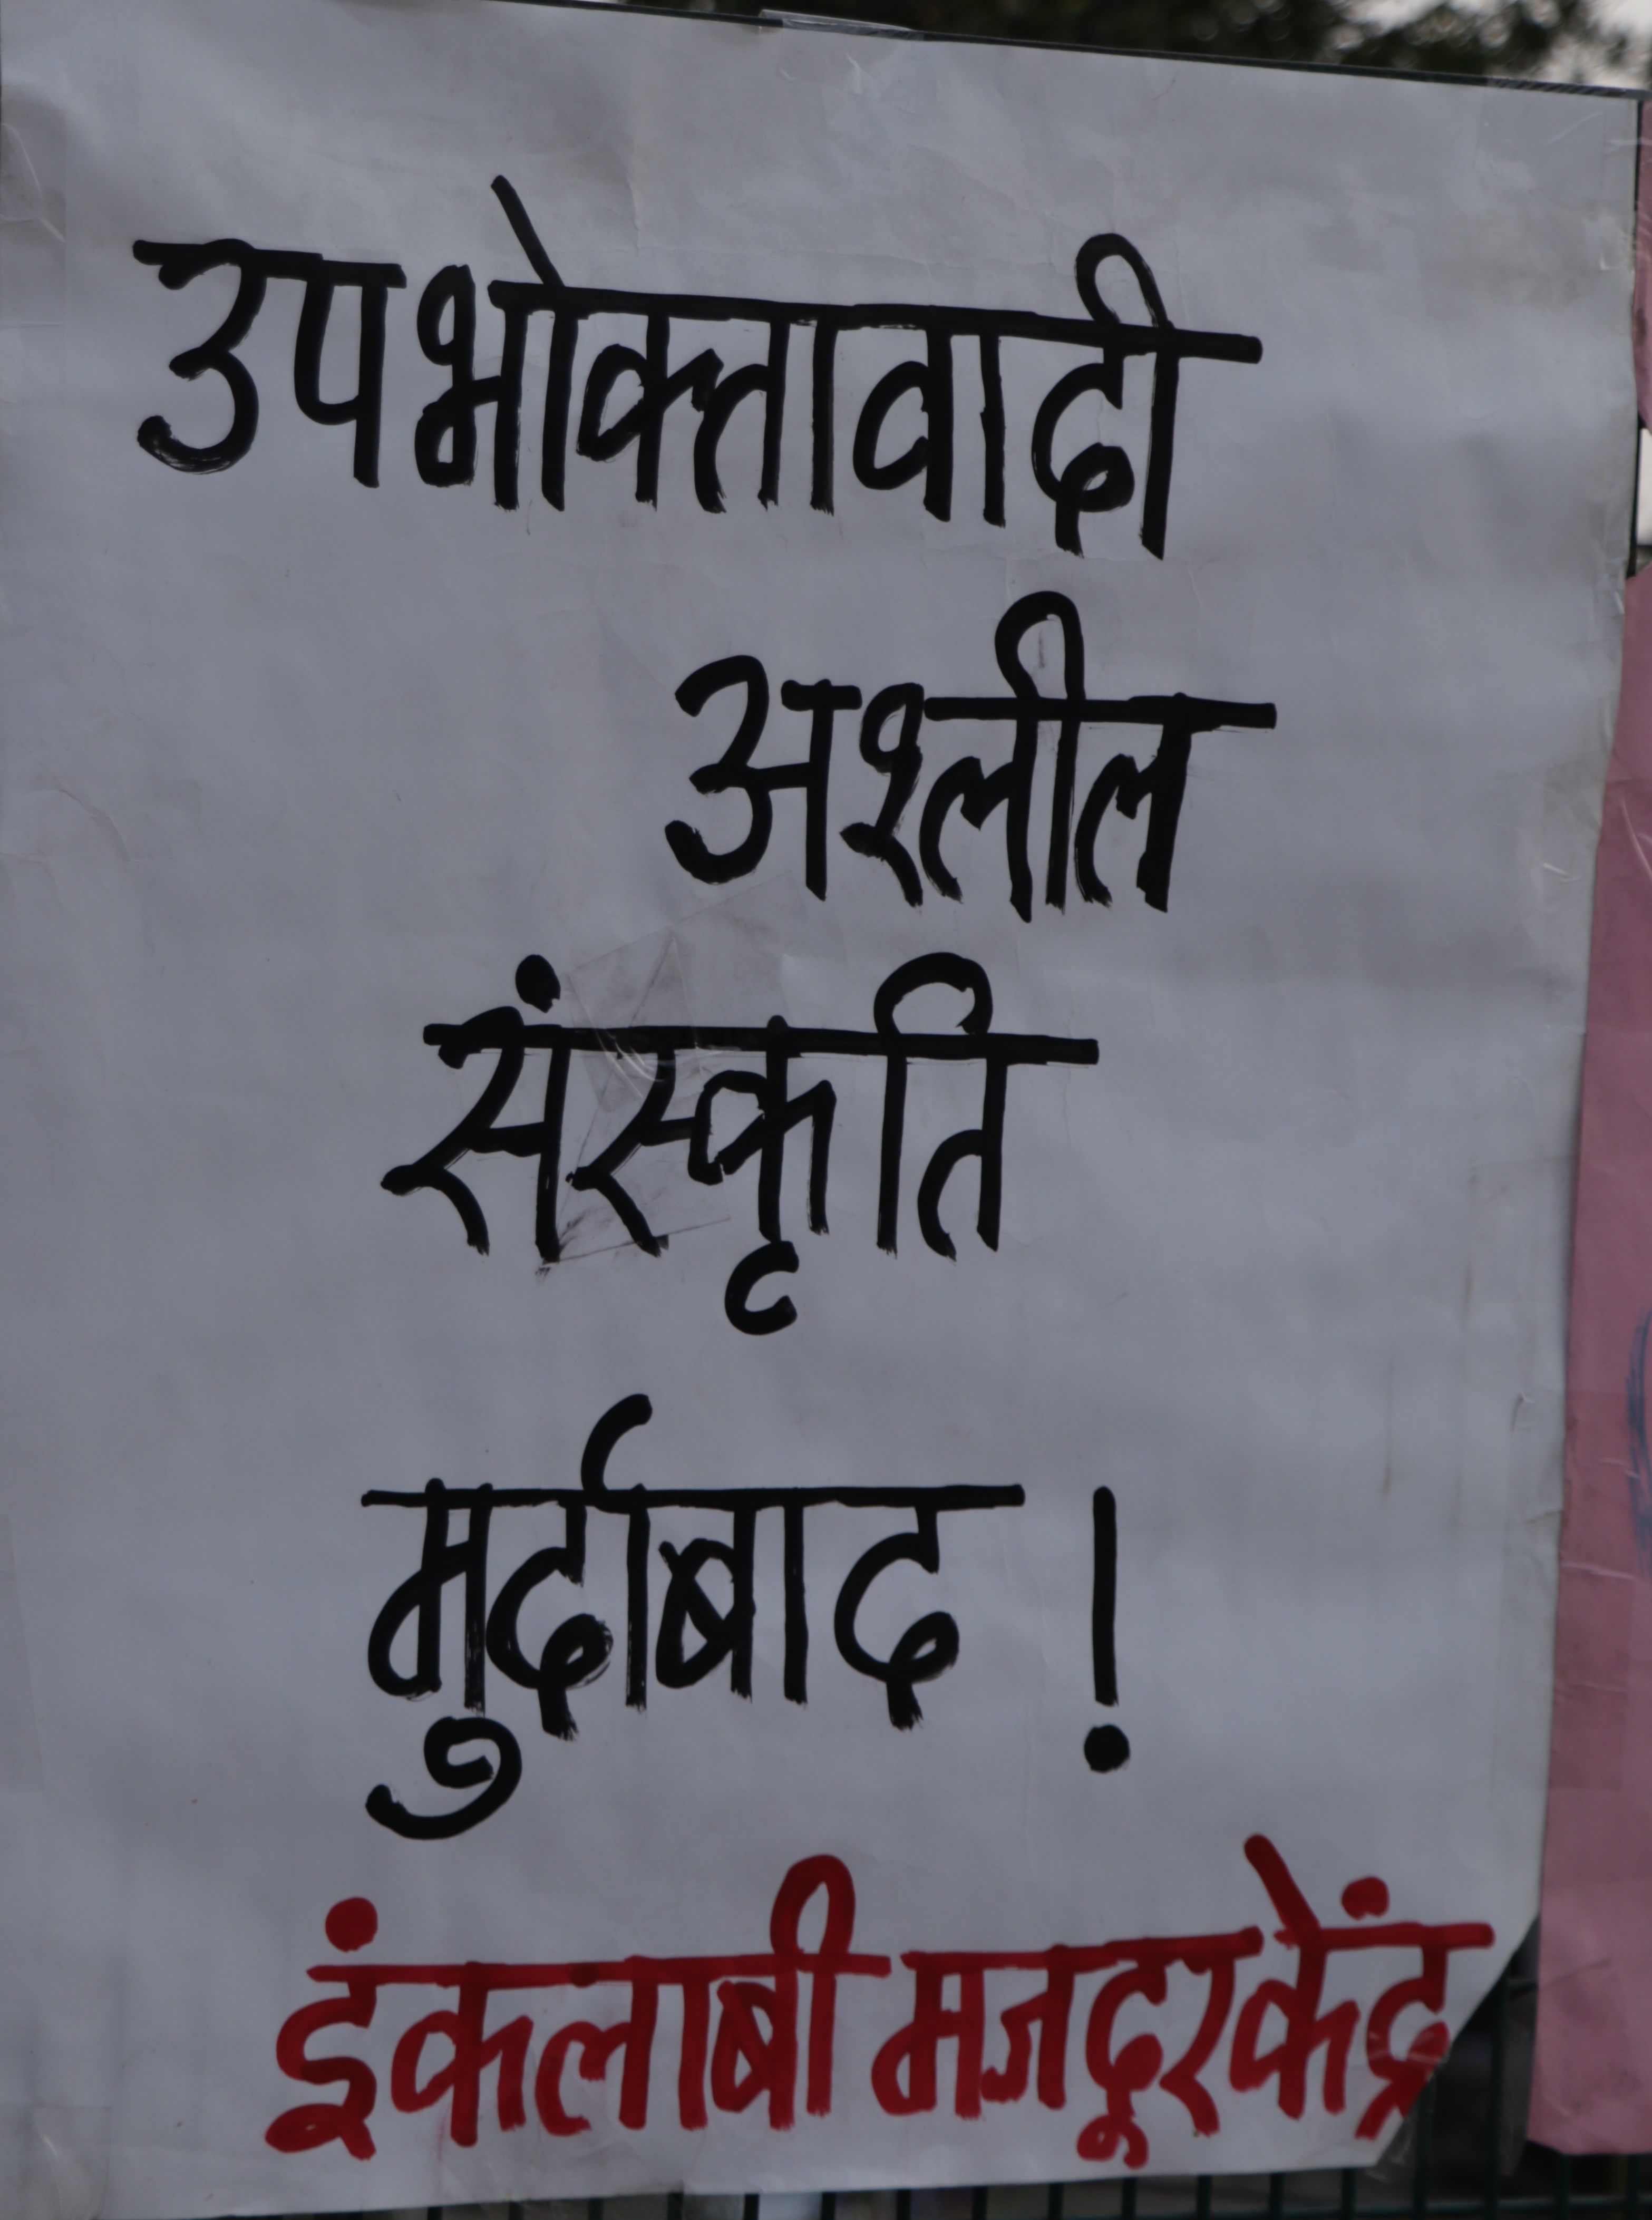 उपभोक्तावादी
अश्लील
संस्कृति
मुर्दाबाद !
इंकलाबी मजदूर केंद्र